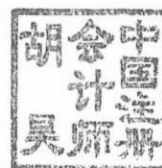 中国注册
会计师
胡